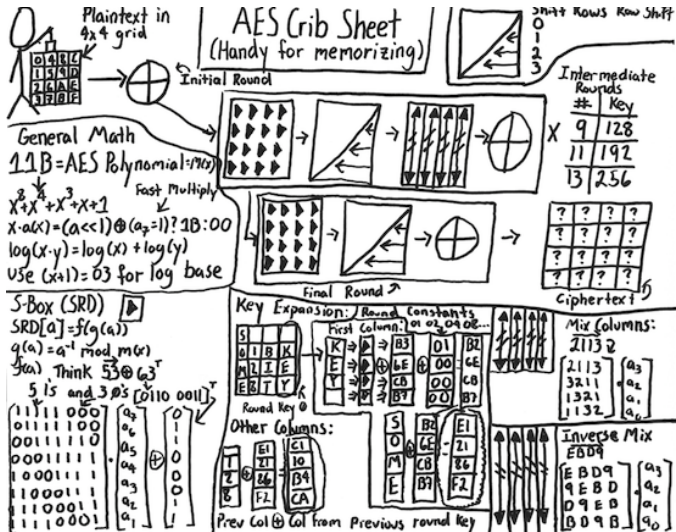 Plaintext in
4x4 grid
AES Crib Sheet
(Handy for memorizing)
Shift Rows Row Shift
0
1
2
3
0 4 8 C
1 5 9 D
2 6 A E
3 7 B F
Initial Round
Intermediate
Rounds
# Key
9 128
11 192
13 256
X
General Math
11B = AES Polynomial = M(x)
Fast Multiply
x⁸+x⁴+x³+x+1
x·a(x)=(a<<1)⊕(a₇=1)?1B:00
log(x·y)=log(x)+log(y)
use (x+1)=03 for log base
Final Round
? ? ? ?
? ? ? ?
? ? ? ?
? ? ? ?
Ciphertext
S-Box (SRD)
SRD[a]=f(g(a))
g(a)=a⁻¹ mod m(x)
f(a) Think 53⊕63ᵀ
5 1's and 3 0's [0110 0011]ᵀ
1 1 1 1 1 0 0 0
0 1 1 1 1 1 0 0
0 0 1 1 1 1 1 0
0 0 0 1 1 1 1 1
1 0 0 0 1 1 1 1
1 1 0 0 0 1 1 1
1 1 1 0 0 0 1 1
1 1 1 1 0 0 0 1
a₇
a₆
a₅
a₄
a₃
a₂
a₁
a₀
0
1
1
0
0
0
1
1
Key Expansion:
Round Constants
01 02 04 08...
First Column:
S
O 1 B K
M 2 I E
E 8 T Y
Round Key 0
K
E
Y
B3
6E
CB
B7
01
00
00
00
B2
6E
CB
B7
Other Columns:
1
2
8
E1
21
86
F2
C1
10
B4
CA
S
O
M
E
B2
6E
CB
B7
E1
21
86
F2
Prev Col ⊕ Col from Previous round key
Mix Columns:
2113
2113
3211
1321
1132
a₃
a₂
a₁
a₀
Inverse Mix
EBD9
EBD9
9EBD
D9EB
BD9E
a₃
a₂
a₁
a₀